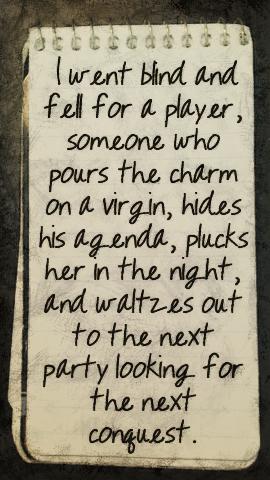 I went blind and
fell for a player,
someone who
pours the charm
on a virgin, hides
his agenda, plucks
her in the night,
and waltzes out
to the next
party looking for
the next
conquest.